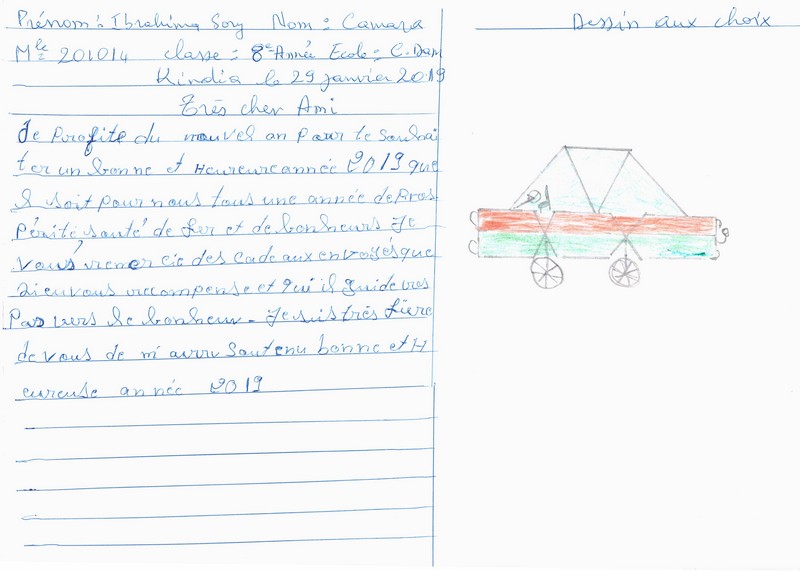 Prénom : Ibrahima Sory Nom = Camara
Mle 201014 classe = 8e Année Ecole = C. Dam
Kindia le 29 janvier 2019
Très cher Ami
Je Profite du nouvel an Pour te souhai
ter un bonne et Heureure année 2019 que
l soit pour nous tous une année de Pros
périté santé de fer et de bonheurs Je
vous remercie des cadeaux envoyés que
Dieu vous recompense et qu'il guide vos
Pas vers le bonheur - Je suis très fière
de vous de m'avru soutenu bonne et H
eureuse année 2019
Dessin aux choix